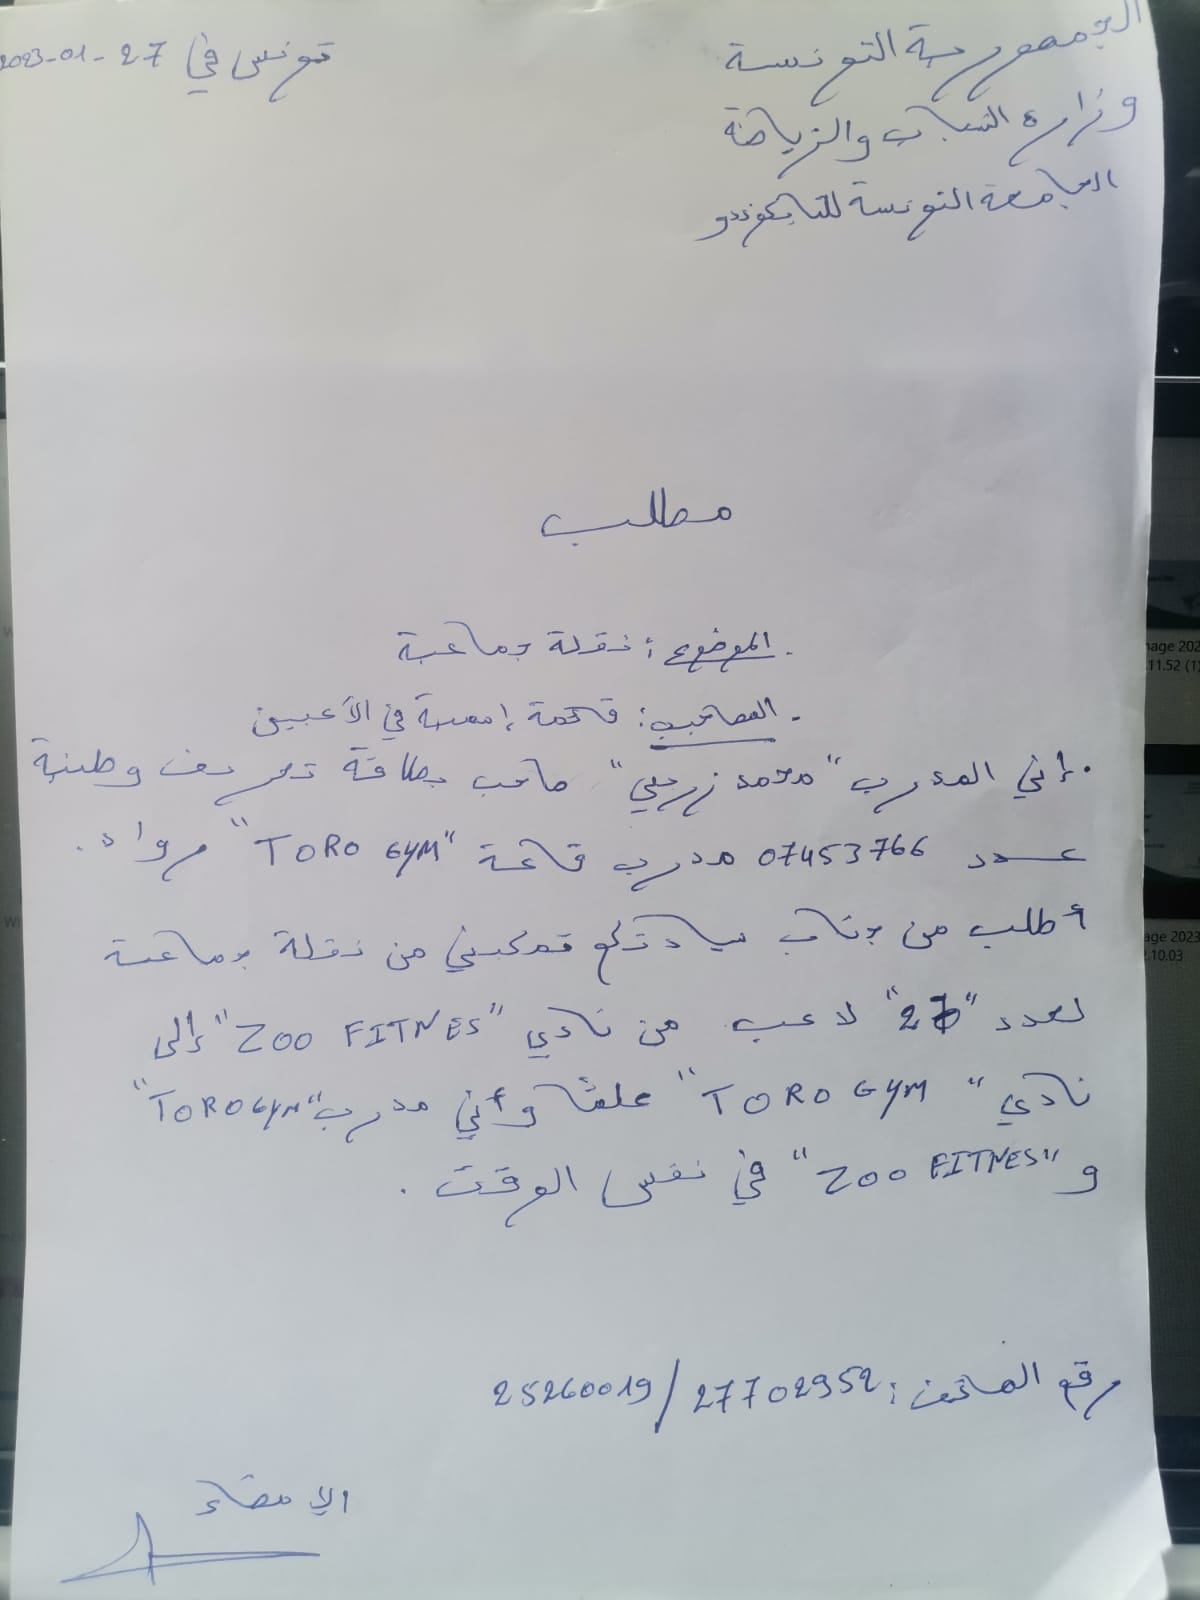 الجمهورية التونسية
تونس في 27-01-2023
وزارة الشباب والرياضة
الجامعة التونسية للتايكوندو
مطلب
. الموضوع: نقلة جماعية
. المصاحيب: قائمة إسمية في الأعبين
. إني المدرب "محمد زرمي" صاحب بطاقة تعريف وطنية
عدد 07453766 مدرب قاعة "TORO GYM" رواد.
أطلب من جناب سيادتكم تمكيني من نقلة جماعية
لعدد "26" لاعب من نادي "ZOO FITNES" إلى
نادي "TORO GYM" علمًا وأني مدرب "TORO GYM"
و "ZOO FITNES" في نفس الوقت.
رقم الهاتف: 27702952/25260019
الإمضاء
image 202
11.52 (1)
age 2023
.10.03